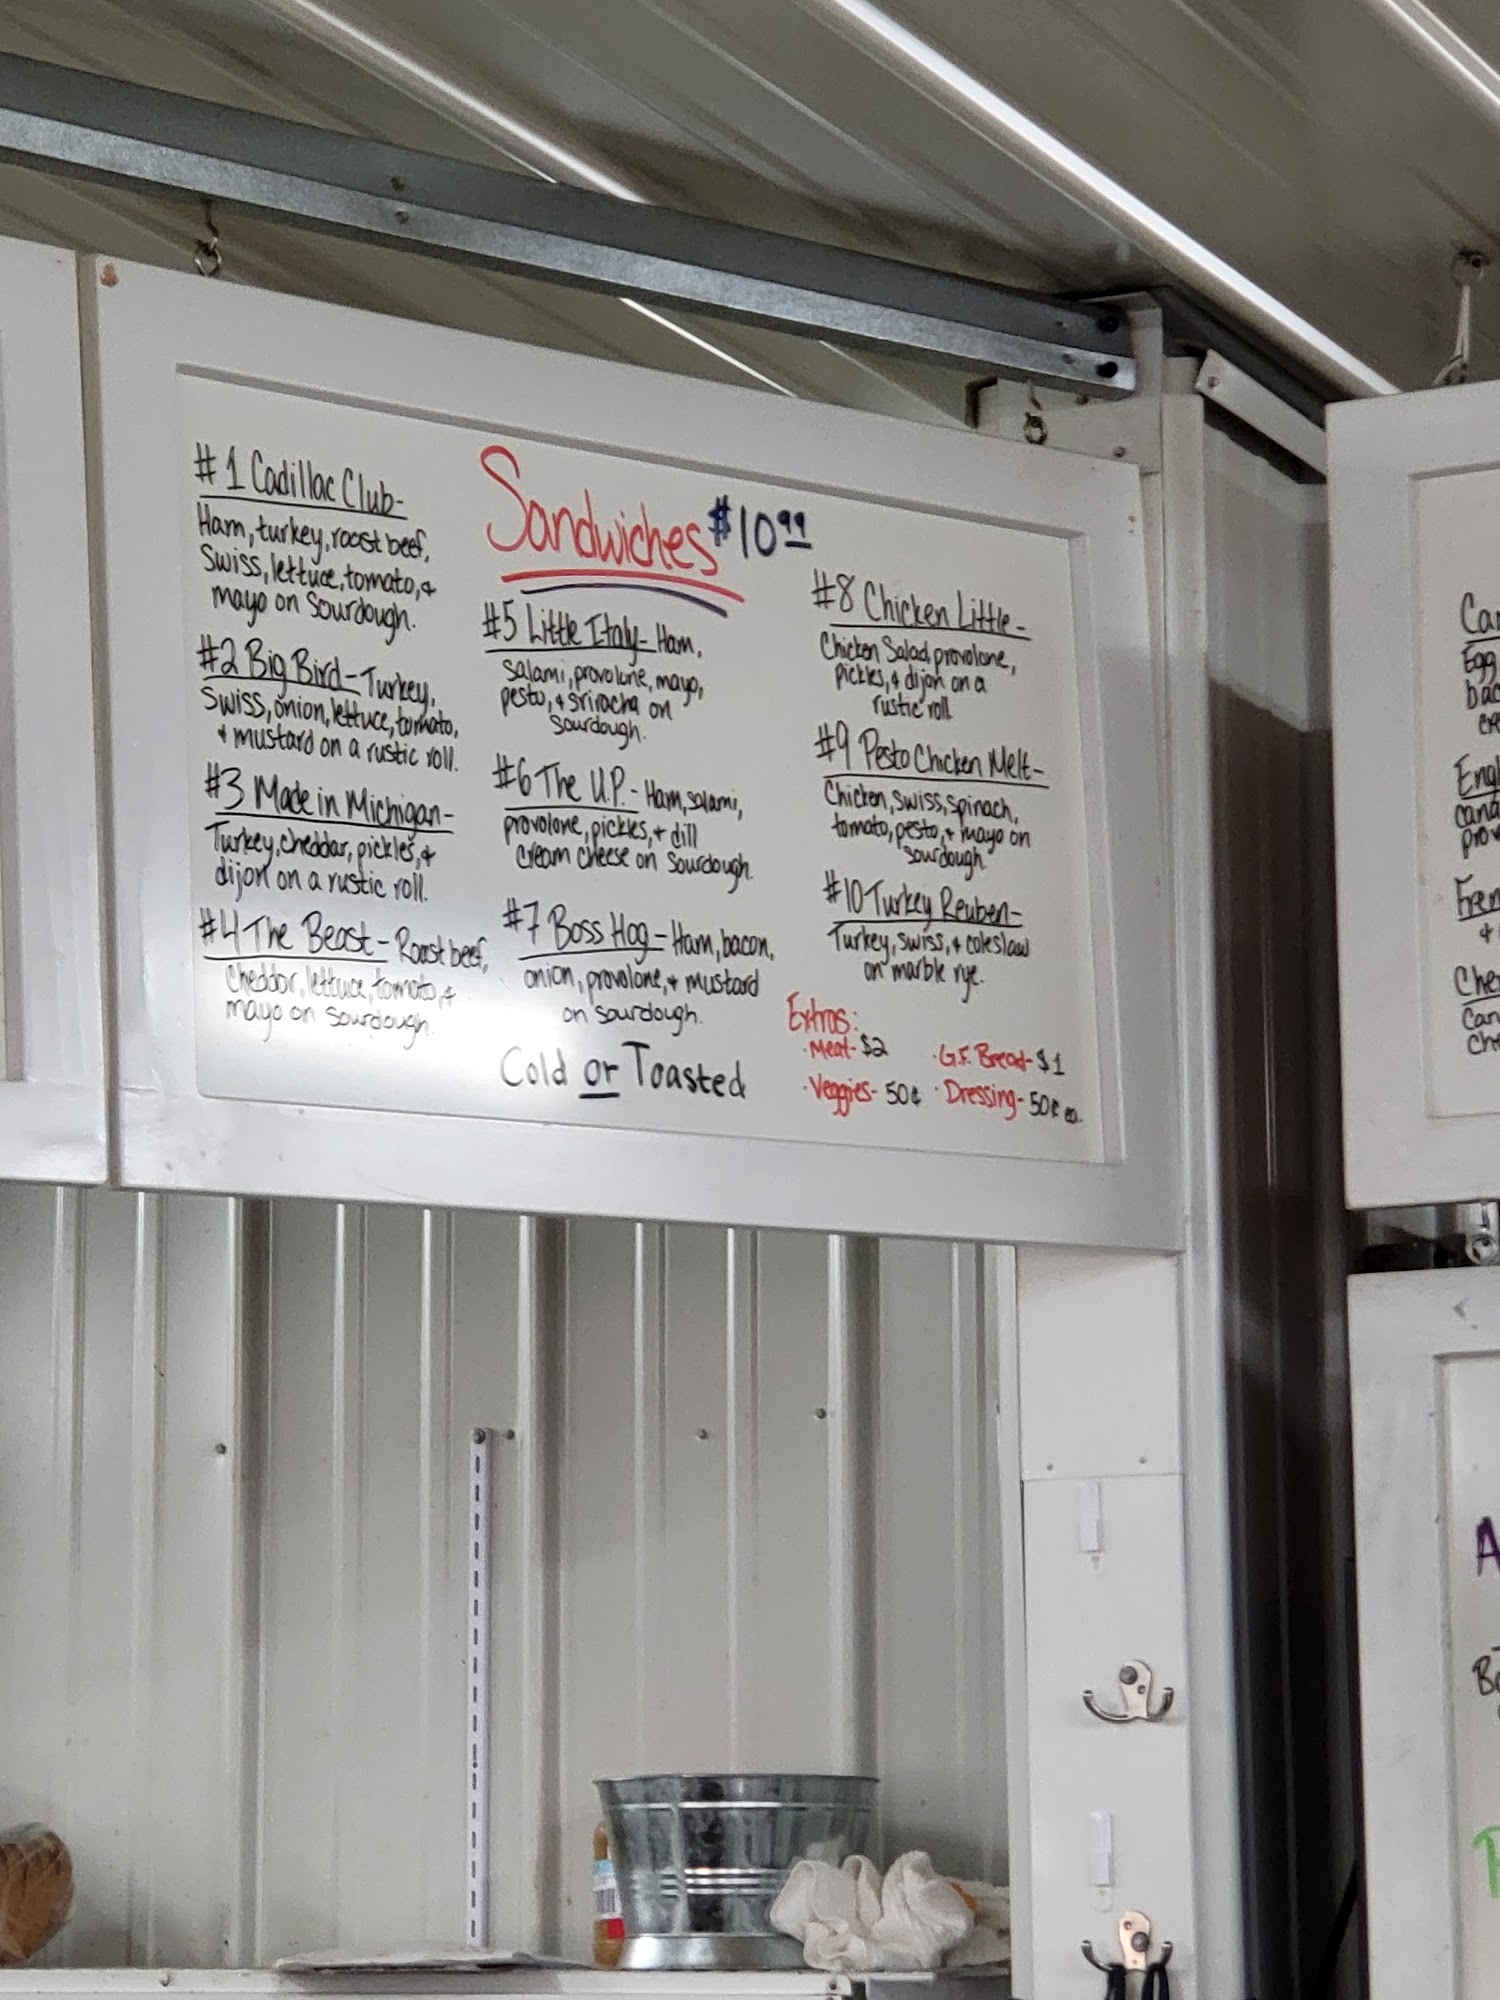 Sandwiches $10.99
#1 Cadillac Club-
Ham, turkey, roast beef,
Swiss, lettuce, tomato, &
mayo on Sourdough.
#2 Big Bird - Turkey,
Swiss, onion, lettuce, tomato,
& mustard on a rustic roll.
#3 Made in Michigan-
Turkey, cheddar, pickles, &
dijon on a rustic roll.
#4 The Beast - Roast beef,
cheddar, lettuce, tomato, &
mayo on sourdough.
#5 Little Italy - Ham,
Salami, provolone, mayo,
pesto, & sriracha on
sourdough.
#6 The U.P. - Ham, salami,
provolone, pickles, & dill
cream cheese on sourdough.
#7 Boss Hog - Ham, bacon,
onion, provolone, & mustard
on sourdough.
Cold or Toasted
#8 Chicken Little -
Chicken Salad, provolone,
pickles, & dijon on a
rustic roll
#9 Pesto Chicken Melt-
Chicken, swiss, spinach,
tomato, pesto, & mayo on
sourdough
#10 Turkey Reuben-
Turkey, swiss, & coleslaw
on marble rye.
Extras:
·Meat- $2 ·G.F. Bread- $1
·Veggies- 50¢ ·Dressing- 50¢ ea.
Egg